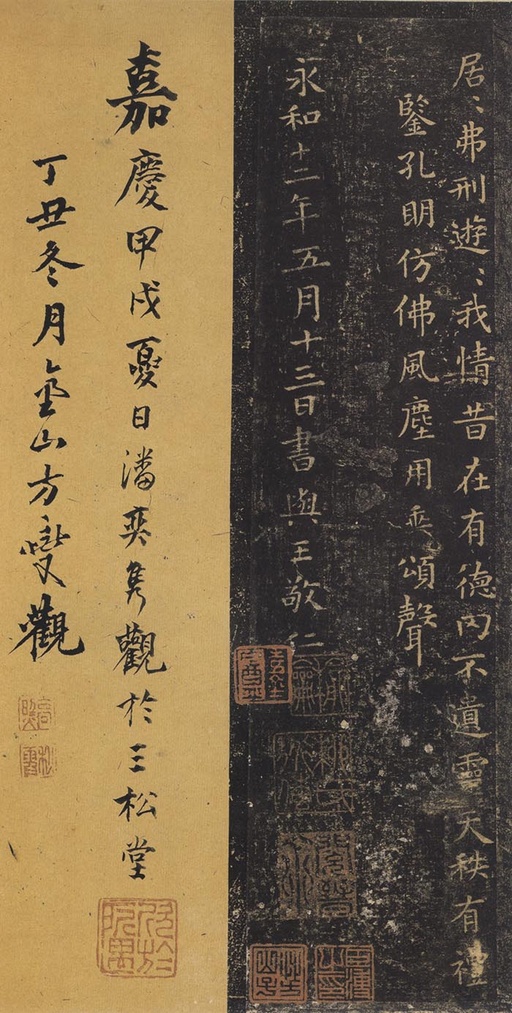 居〻弗刑遊〻我情昔在有德罔不遺靈天秩有禮
鑒孔明仿佛風塵用垂頌聲
永和十二年五月十三日書與王敬仁
嘉慶甲戌夏日潘奕雋觀於三松堂
丁丑冬月金山方燮觀